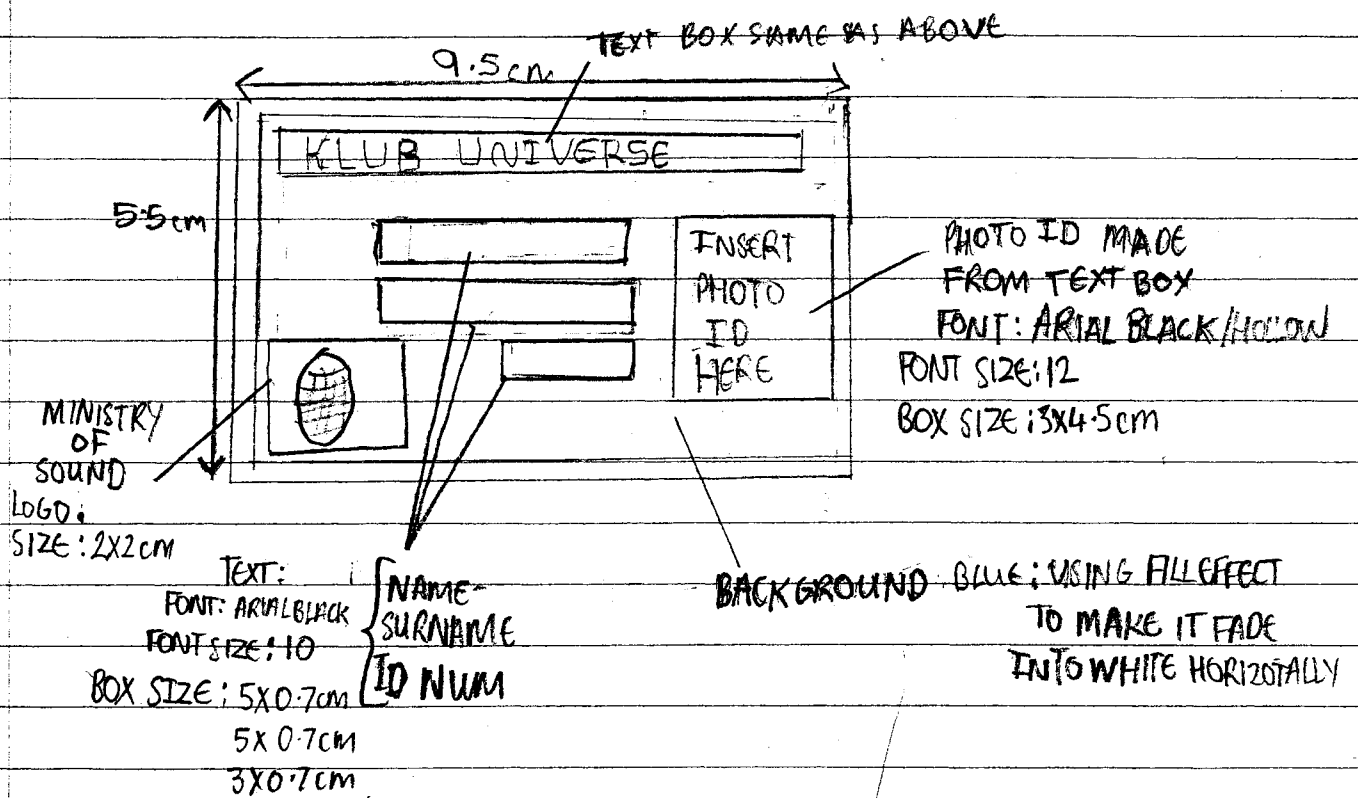 TEXT BOX SAME AS ABOVE
9.5cm
KLUB UNIVERSE
5.5cm
INSERT
PHOTO
ID
HERE
PHOTO ID MADE
FROM TEXT BOX
FONT: ARIAL BLACK/HOLLOW
FONT SIZE: 12
BOX SIZE: 3X4.5cm
MINISTRY
OF
SOUND
LOGO:
SIZE: 2X2cm
TEXT:
FONT: ARIAL BLACK
FONT SIZE: 10
BOX SIZE: 5X0.7cm
5X0.7cm
3X0.7cm
NAME-
SURNAME
ID NUM
BACKGROUND BLUE: USING FILL EFFECT
TO MAKE IT FADE
INTO WHITE HORIZOTALLY